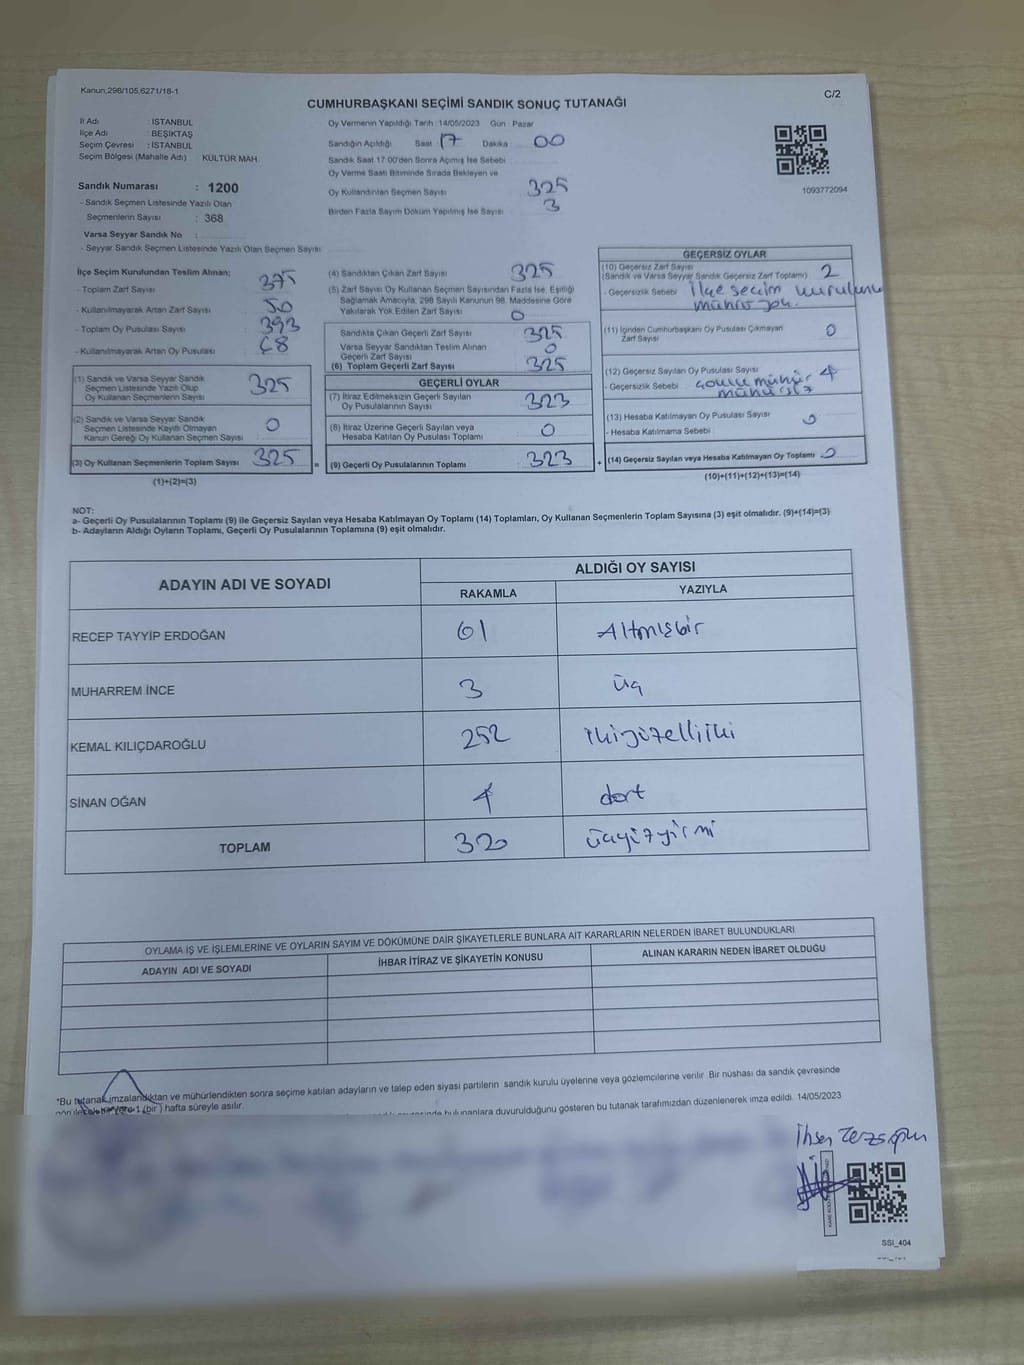 Kanun;298/105,6271/18-1
C/2
CUMHURBAŞKANI SEÇİMİ SANDIK SONUÇ TUTANAĞI
İl Adı : İSTANBUL
İlçe Adı : BEŞİKTAŞ
Seçim Çevresi : İSTANBUL
Seçim Bölgesi (Mahalle Adı) : KÜLTÜR MAH.
Sandık Numarası : 1200
- Sandık Seçmen Listesinde Yazılı Olan
Seçmenlerin Sayısı : 368
Varsa Seyyar Sandık No :
- Seyyar Sandık Seçmen Listesinde Yazılı Olan Seçmen Sayısı
Oy Vermenin Yapıldığı Tarih :14/05/2023 Gün : Pazar
Sandığın Açıldığı Saat : 17 Dakika 00
Sandık Saat 17:00'den Sonra Açımış İse Sebebi
Oy Verme Saati Bitiminde Sırada Bekleyen ve
Oy Kullandırılan Seçmen Sayısı 325
Birden Fazla Sayım Döküm Yapılmış İse Sayısı 3
1093772094
İlçe Seçim Kurulundan Teslim Alınan;
- Toplam Zarf Sayısı 375
- Kullanılmayarak Artan Zarf Sayısı 50
- Toplam Oy Pusulası Sayısı 393
- Kullanılmayarak Artan Oy Pusulası 68
(1) Sandık ve Varsa Seyyar Sandık
Seçmen Listesinde Yazılı Olup
Oy Kullanan Seçmenlerin Sayısı 325
(2) Sandık ve Varsa Seyyar Sandık
Seçmen Listesinde Kayıtlı Olmayan
Kanun Gereği Oy Kullanan Seçmen Sayısı 0
(3) Oy Kullanan Seçmenlerin Toplam Sayısı 325 =
(1)+(2)=(3)
(4) Sandıktan Çıkan Zarf Sayısı 325
(5) Zarf Sayısı Oy Kullanan Seçmen Sayısından Fazla İse, Eşitliği
Sağlamak Amacıyla, 298 Sayılı Kanunun 98. Maddesine Göre
Yakılarak Yok Edilen Zarf Sayısı 0
Sandıkta Çıkan Geçerli Zarf Sayısı 325
Varsa Seyyar Sandıktan Teslim Alınan
Geçerli Zarf Sayısı 0
(6) Toplam Geçerli Zarf Sayısı 325
GEÇERLİ OYLAR
(7) İtiraz Edilmeksizin Geçerli Sayılan
Oy Pusulalarının Sayısı 323
(8) İtiraz Üzerine Geçerli Sayılan veya
Hesaba Katılan Oy Pusulası Toplamı 0
(9) Geçerli Oy Pusulalarının Toplamı 323 +
GEÇERSİZ OYLAR
(10) Geçersiz Zarf Sayısı
(Sandık ve Varsa Seyyar Sandık Geçersiz Zarf Toplamı) 2
- Geçersizlik Sebebi İlçe seçim kurulunu
mührü yok.
(11) İçinden Cumhurbaşkanı Oy Pusulası Çıkmayan
Zarf Sayısı 0
(12) Geçersiz Sayılan Oy Pusulası Sayısı 4
- Geçersizlik Sebebi mühür
mühürsüz
(13) Hesaba Katılmayan Oy Pusulası Sayısı 0
- Hesaba Katılmama Sebebi
(14) Geçersiz Sayılan veya Hesaba Katılmayan Oy Toplamı
(10)+(11)+(12)+(13)=(14)
NOT:
a- Geçerli Oy Pusulalarının Toplamı (9) ile Geçersiz Sayılan veya Hesaba Katılmayan Oy Toplamı (14) Toplamları, Oy Kullanan Seçmenlerin Toplam Sayısına (3) eşit olmalıdır. (9)+(14)=(3)
b- Adayların Aldığı Oyların Toplamı, Geçerli Oy Pusulalarının Toplamına (9) eşit olmalıdır.
ADAYIN ADI VE SOYADI
ALDIĞI OY SAYISI
RAKAMLA YAZIYLA
RECEP TAYYİP ERDOĞAN 61 Altmışbir
MUHARREM İNCE 3 üç
KEMAL KILIÇDAROĞLU 252 ikiyüzelliiki
SİNAN OĞAN 4 dört
TOPLAM 320 üçyüzyirmi
OYLAMA İŞ VE İŞLEMLERİNE VE OYLARIN SAYIM VE DÖKÜMÜNE DAİR ŞİKAYETLERLE BUNLARA AİT KARARLARIN NELERDEN İBARET BULUNDUKLARI
ADAYIN ADI VE SOYADI İHBAR İTİRAZ VE ŞİKAYETİN KONUSU ALINAN KARARIN NEDEN İBARET OLDUĞU
*Bu tutanak imzalandıktan ve mühürlendikten sonra seçime katılan adayların ve talep eden siyasi partilerin sandık kurulu üyelerine veya gözlemcilerine verilir. Bir nüshası da sandık çevresinde
görülecek bir yere 1 (bir ) hafta süreyle asılır.
bulunanlara duyurulduğunu gösteren bu tutanak tarafımızdan düzenlenerek imza edildi. 14/05/2023
SSI_404